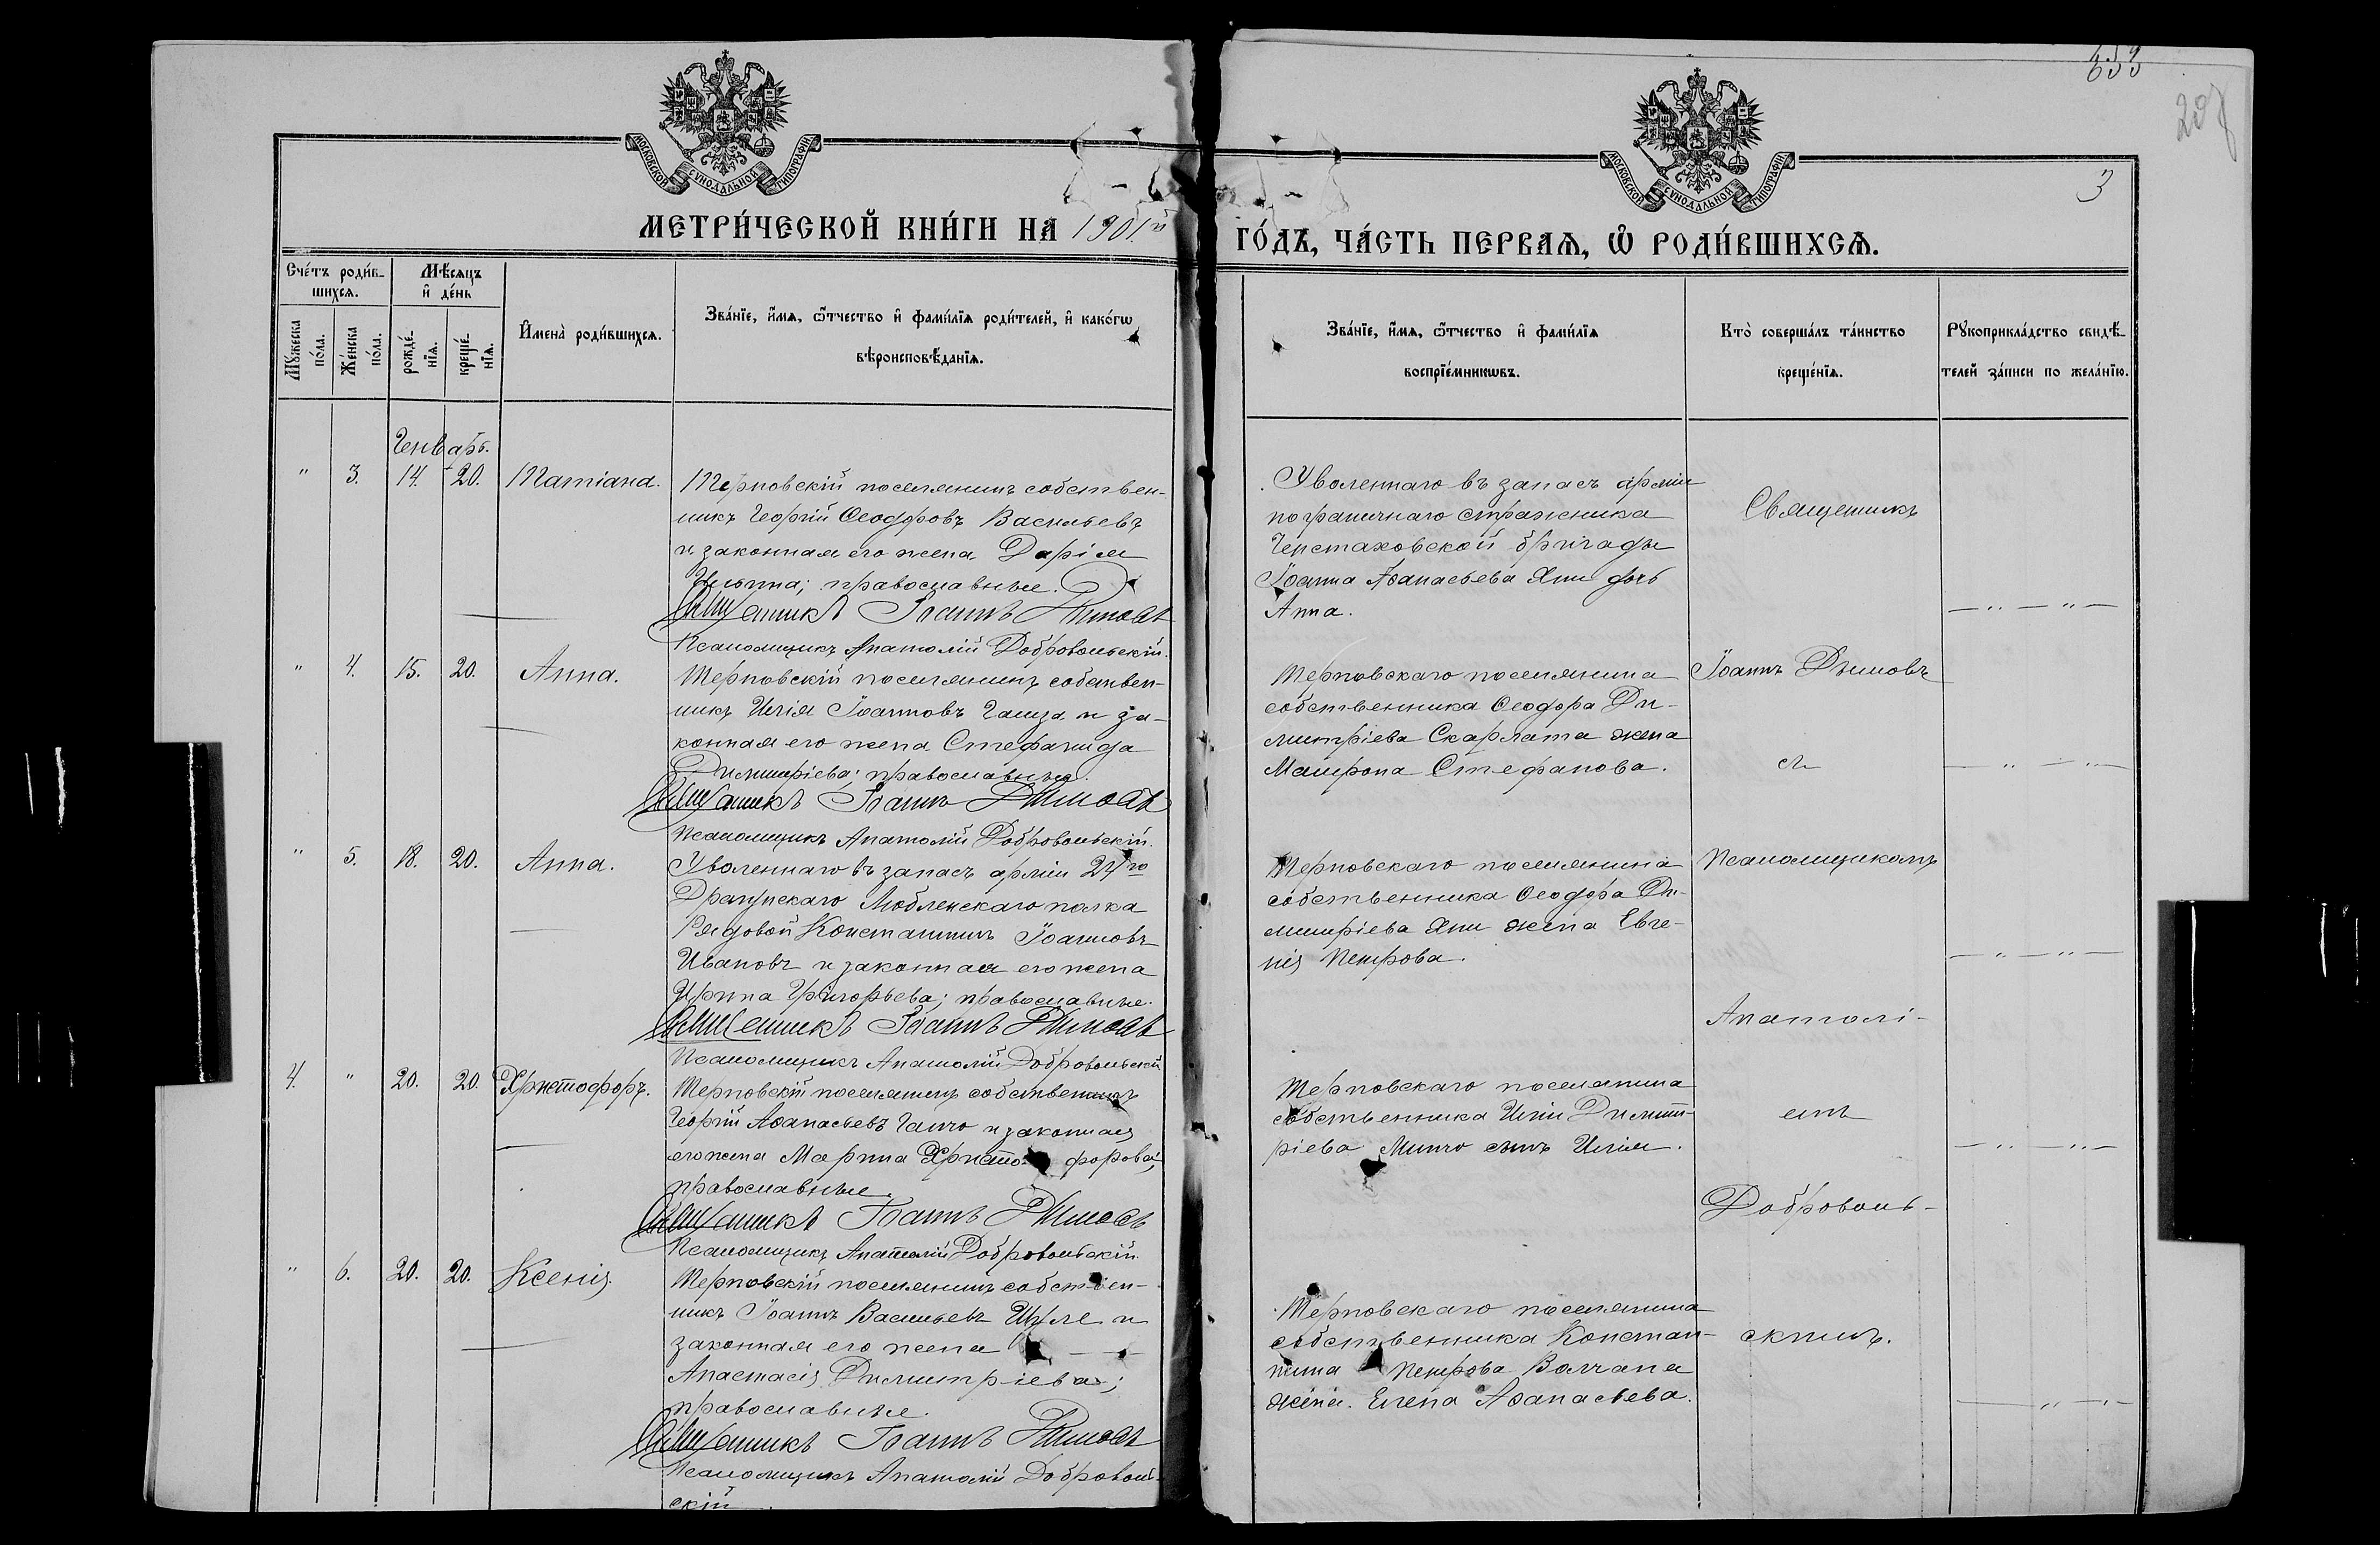 653
207
3
МОСКОВСКОЙ СУНОДАЛЬНОЙ ТИПОГРАФІИ
МОСКОВСКОЙ СУНОДАЛЬНОЙ ТИПОГРАФІИ
МЕТРИ́ЧЕСКОЙ КНИ́ГИ НА 1901й ГО́ДЪ, ЧА́СТЬ ПЕРВАѦ, Ѿ РОДИ́ВШИХСѦ.
Сче́тъ роди́в-
шихсѧ.
Мꙋжеска
по́ла.
Же́нска
по́ла.
Мѣ́сѧцъ
и҆ де́нь
рожде́-
нїѧ.
креще́-
нїѧ.
И҆мена̀ роди́вшихсѧ.
Зва́нїе, и҆́мѧ, ѻ҆́тчество и҆ фами́лїѧ роди́телей, и҆ како́гѡ
вѣроисповѣ́данїѧ.
Зва́нїе, и҆́мѧ, ѻ҆́тчество и҆ фами́лїѧ
воспрїе́мникѡвъ.
Кто̀ соверша́лъ та́инство
креще́нїѧ.
Рꙋкоприкла́дство свидѣ́-
телей за́писи по жела́нїю.
Генварь.
" 3. 14. 20. Татіана.
Терновскій поселянинъ собствен-
никъ Георгій Ѳеодоровъ Васильевъ
и законная его жена Дарія
Ильина; православные.
Священникъ Іоаннъ Димовъ
Псаломщикъ Анатолій Добровольскій.
Уволеннаго въ запасъ арміи
пограничнаго стражника
Ченстаховской бригады
Іоанна Аѳанасьева Яни дочь
Анна.
Священникъ
— " — " —
" 4. 15. 20. Анна.
Терновскій поселянинъ собствен-
никъ Илія Іоанновъ Ганза и за-
конная его жена Стефанида
Димитріева; православные.
Священникъ Іоаннъ Димовъ
Псаломщикъ Анатолій Добровольскій.
Терновскаго поселянина
собственника Ѳеодора Ди-
митріева Скарлата жена
Матрона Стефанова.
Іоаннъ Димовъ
съ
— " — " —
" 5. 18. 20. Анна.
Уволеннаго въ запасъ арміи 24го
Драгунскаго Любленскаго полка
Рядовой Константинъ Іоанновъ
Ивановъ и законная его жена
Ирина Григорьева; православные.
Священникъ Іоаннъ Димовъ
Псаломщикъ Анатолій Добровольскій
Терновскаго поселянина
собственника Ѳеодора Ди-
митріева Яни жена Евге-
нія Петрова.
Псаломщикомъ
Анатолі-
— " — " —
4. " 20. 20. Христофоръ.
Терновскій поселянинъ собственникъ
Георгій Аѳанасьевъ Ганчо и законная
его жена Марина Христо- форова;
православные.
Священникъ Іоаннъ Димовъ
Псаломщикъ Анатолій Добровольскій.
Терновскаго поселянина
собственника Иліи Димит-
ріева Минчо сынъ Илія.
емъ
Доброволь-
— " — " —
" 6. 20. 20. Ксенія.
Терновскій поселянинъ собствен-
никъ Іоаннъ Васильевъ и
законная его жена
Анастасія Димитріева;
православные.
Священникъ Іоаннъ Димовъ
Псаломщикъ Анатолій Доброволь-
скій.
Терновскаго поселянина
собственника Констан-
тина Петрова Волчана
жена Елена Аѳанасьева.
скимъ.
— " — " —